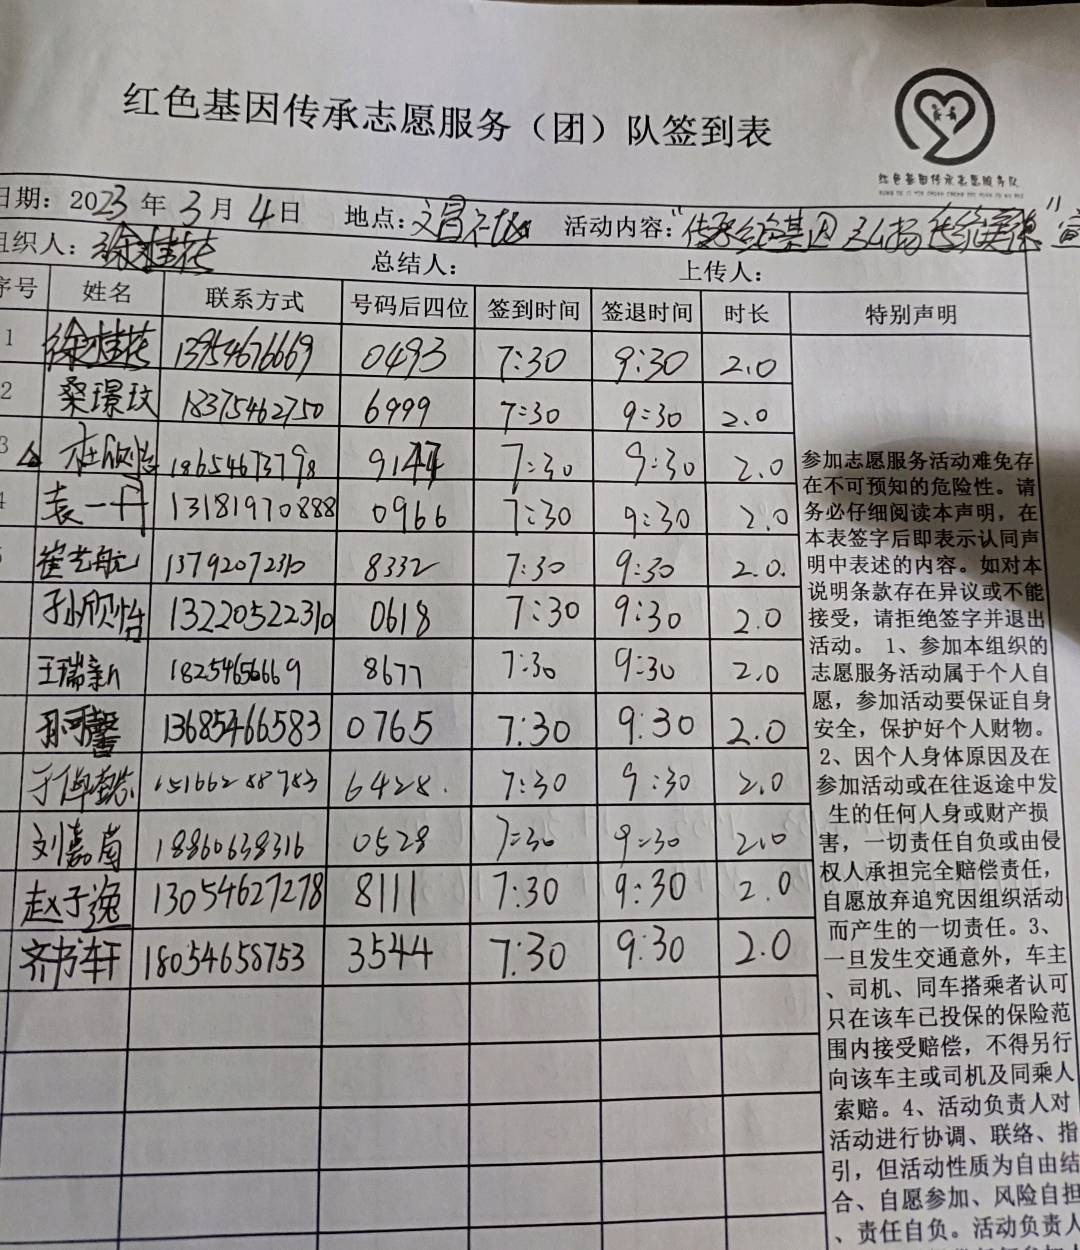 红色基因传承志愿服务（团）队签到表
红色基因传承志愿服务队
日期：2023年3月4日 地点：文昌社区 活动内容：“传承红色基因 弘扬传统美德”
组织人：徐桂花 总结人： 上传人：
序号 姓名 联系方式 号码后四位 签到时间 签退时间 时长 特别声明
1 徐桂花 13954676669 0493 7:30 9:30 2.0
2 桑璟玟 18375462750 6999 7:30 9:30 2.0
3 杜欣怡 18654673798 9144 7:30 9:30 2.0
4 袁一丹 13181970888 0966 7:30 9:30 2.0
5 崔艺航 13792072310 8332 7:30 9:30 2.0.
孙欣怡 13220522310 0618 7:30 9:30 2.0
王瑞新 18254656669 8677 7:30 9:30 2.0
可馨 13685466583 0765 7:30 9:30 2.0
于 15166288783 6428. 7:30 9:30 2.0
刘嘉 18860638316 0528 7:30 9:30 2.0
赵子逸 13054627278 8111 7:30 9:30 2.0
齐书轩 18054658753 3544 7:30 9:30 2.0
参加志愿服务活动难免存
在不可预知的危险性。请
务必仔细阅读本声明，在
本表签字后即表示认同声
明中表述的内容。如对本
说明条款存在异议或不能
接受，请拒绝签字并退出
活动。 1、参加本组织的
志愿服务活动属于个人自
愿，参加活动要保证自身
安全，保护好个人财物。
2、因个人身体原因及在
参加活动或在往返途中发
生的任何人身或财产损
害，一切责任自负或由侵
权人承担完全赔偿责任，
自愿放弃追究因组织活动
而产生的一切责任。3、
一旦发生交通意外，车主
、司机、同车搭乘者认可
只在该车已投保的保险范
围内接受赔偿，不得另行
向该车主或司机及同乘人
索赔。4、活动负责人对
活动进行协调、联络、指
引，但活动性质为自由结
合、自愿参加、风险自担
、责任自负。活动负责人